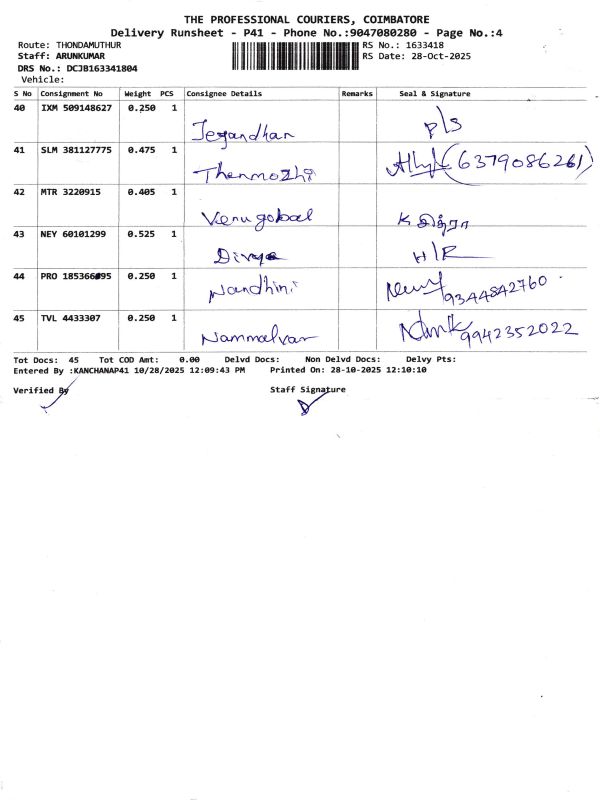 THE PROFESSIONAL COURIERS, COIMBATORE
Delivery Runsheet - P41 - Phone No.:9047080280 - Page No.:4
Route: THONDAMUTHUR RS No.: 1633418
Staff: ARUNKUMAR RS Date: 28-Oct-2025
DRS No.: DCJB163341804
Vehicle:
S No Consignment No Weight PCS Consignee Details Remarks Seal & Signature
40 IXM 509148627 0.250 1
Jegandhan P/S
41 SLM 381127775 0.475 1
Thenmozhi (6379086261)
42 MTR 3220915 0.405 1
Venugobal
43 NEY 60101299 0.525 1
Divya H/R
44 PRO 185366895 0.250 1
Nandhini 9344842760
45 TVL 4433307 0.250 1
Nammalvar 9942352022
Tot Docs: 45 Tot COD Amt: 0.00 Delvd Docs: Non Delvd Docs: Delvy Pts:
Entered By :KANCHANAP41 10/28/2025 12:09:43 PM Printed On: 28-10-2025 12:10:10
Verified By Staff Signature